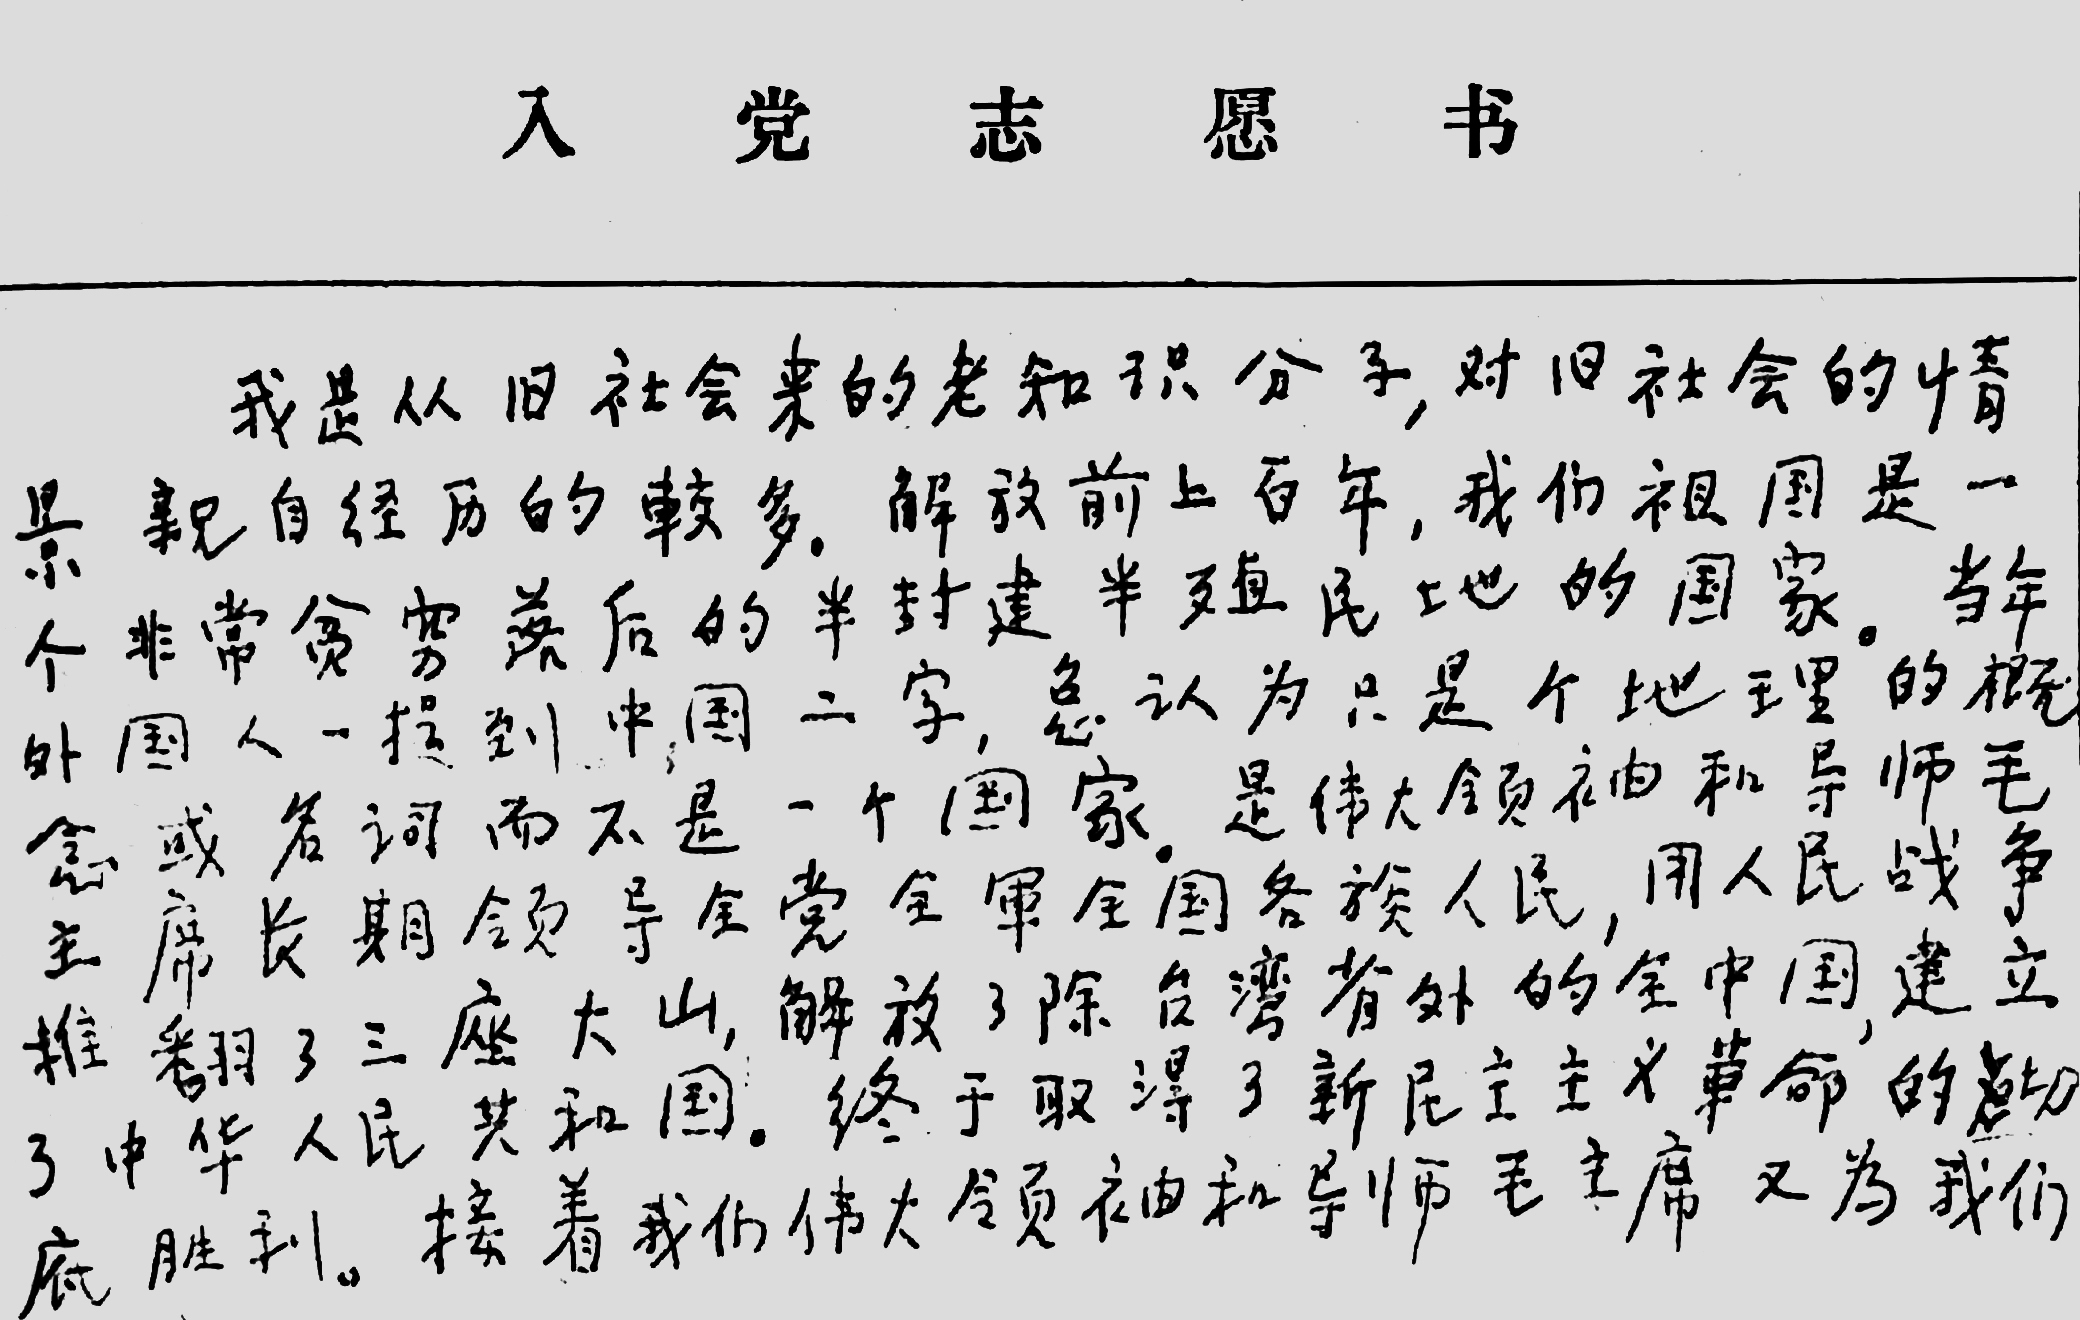 入党志愿书
我是从旧社会来的老知识分子,对旧社会的情
景亲自经历的較多。解放前上百年,我们祖国是一
个非常贫穷落后的半封建半殖民地的国家。当年
外国人一提到中国二字,总认为只是个地理的概
念或名词而不是一个国家。是伟大领袖和导师毛
主席长期领导全党全軍全国各族人民,用人民战争
推翻了三座大山,解放了除台湾省外的全中国,建立
了中华人民共和国。终于取得了新民主主义革命的彻
底胜利。接着我们伟大领袖和导师毛主席又为我们